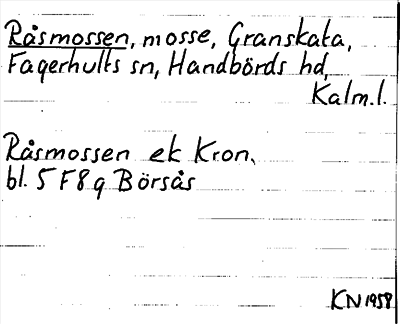 Råsmossen, mosse, Granskata,
Fagerhults sn, Handbörds hd,
Kalm.l.
Råsmossen ek Kron.
bl. 5 F 8 g Börsås
KN 1958